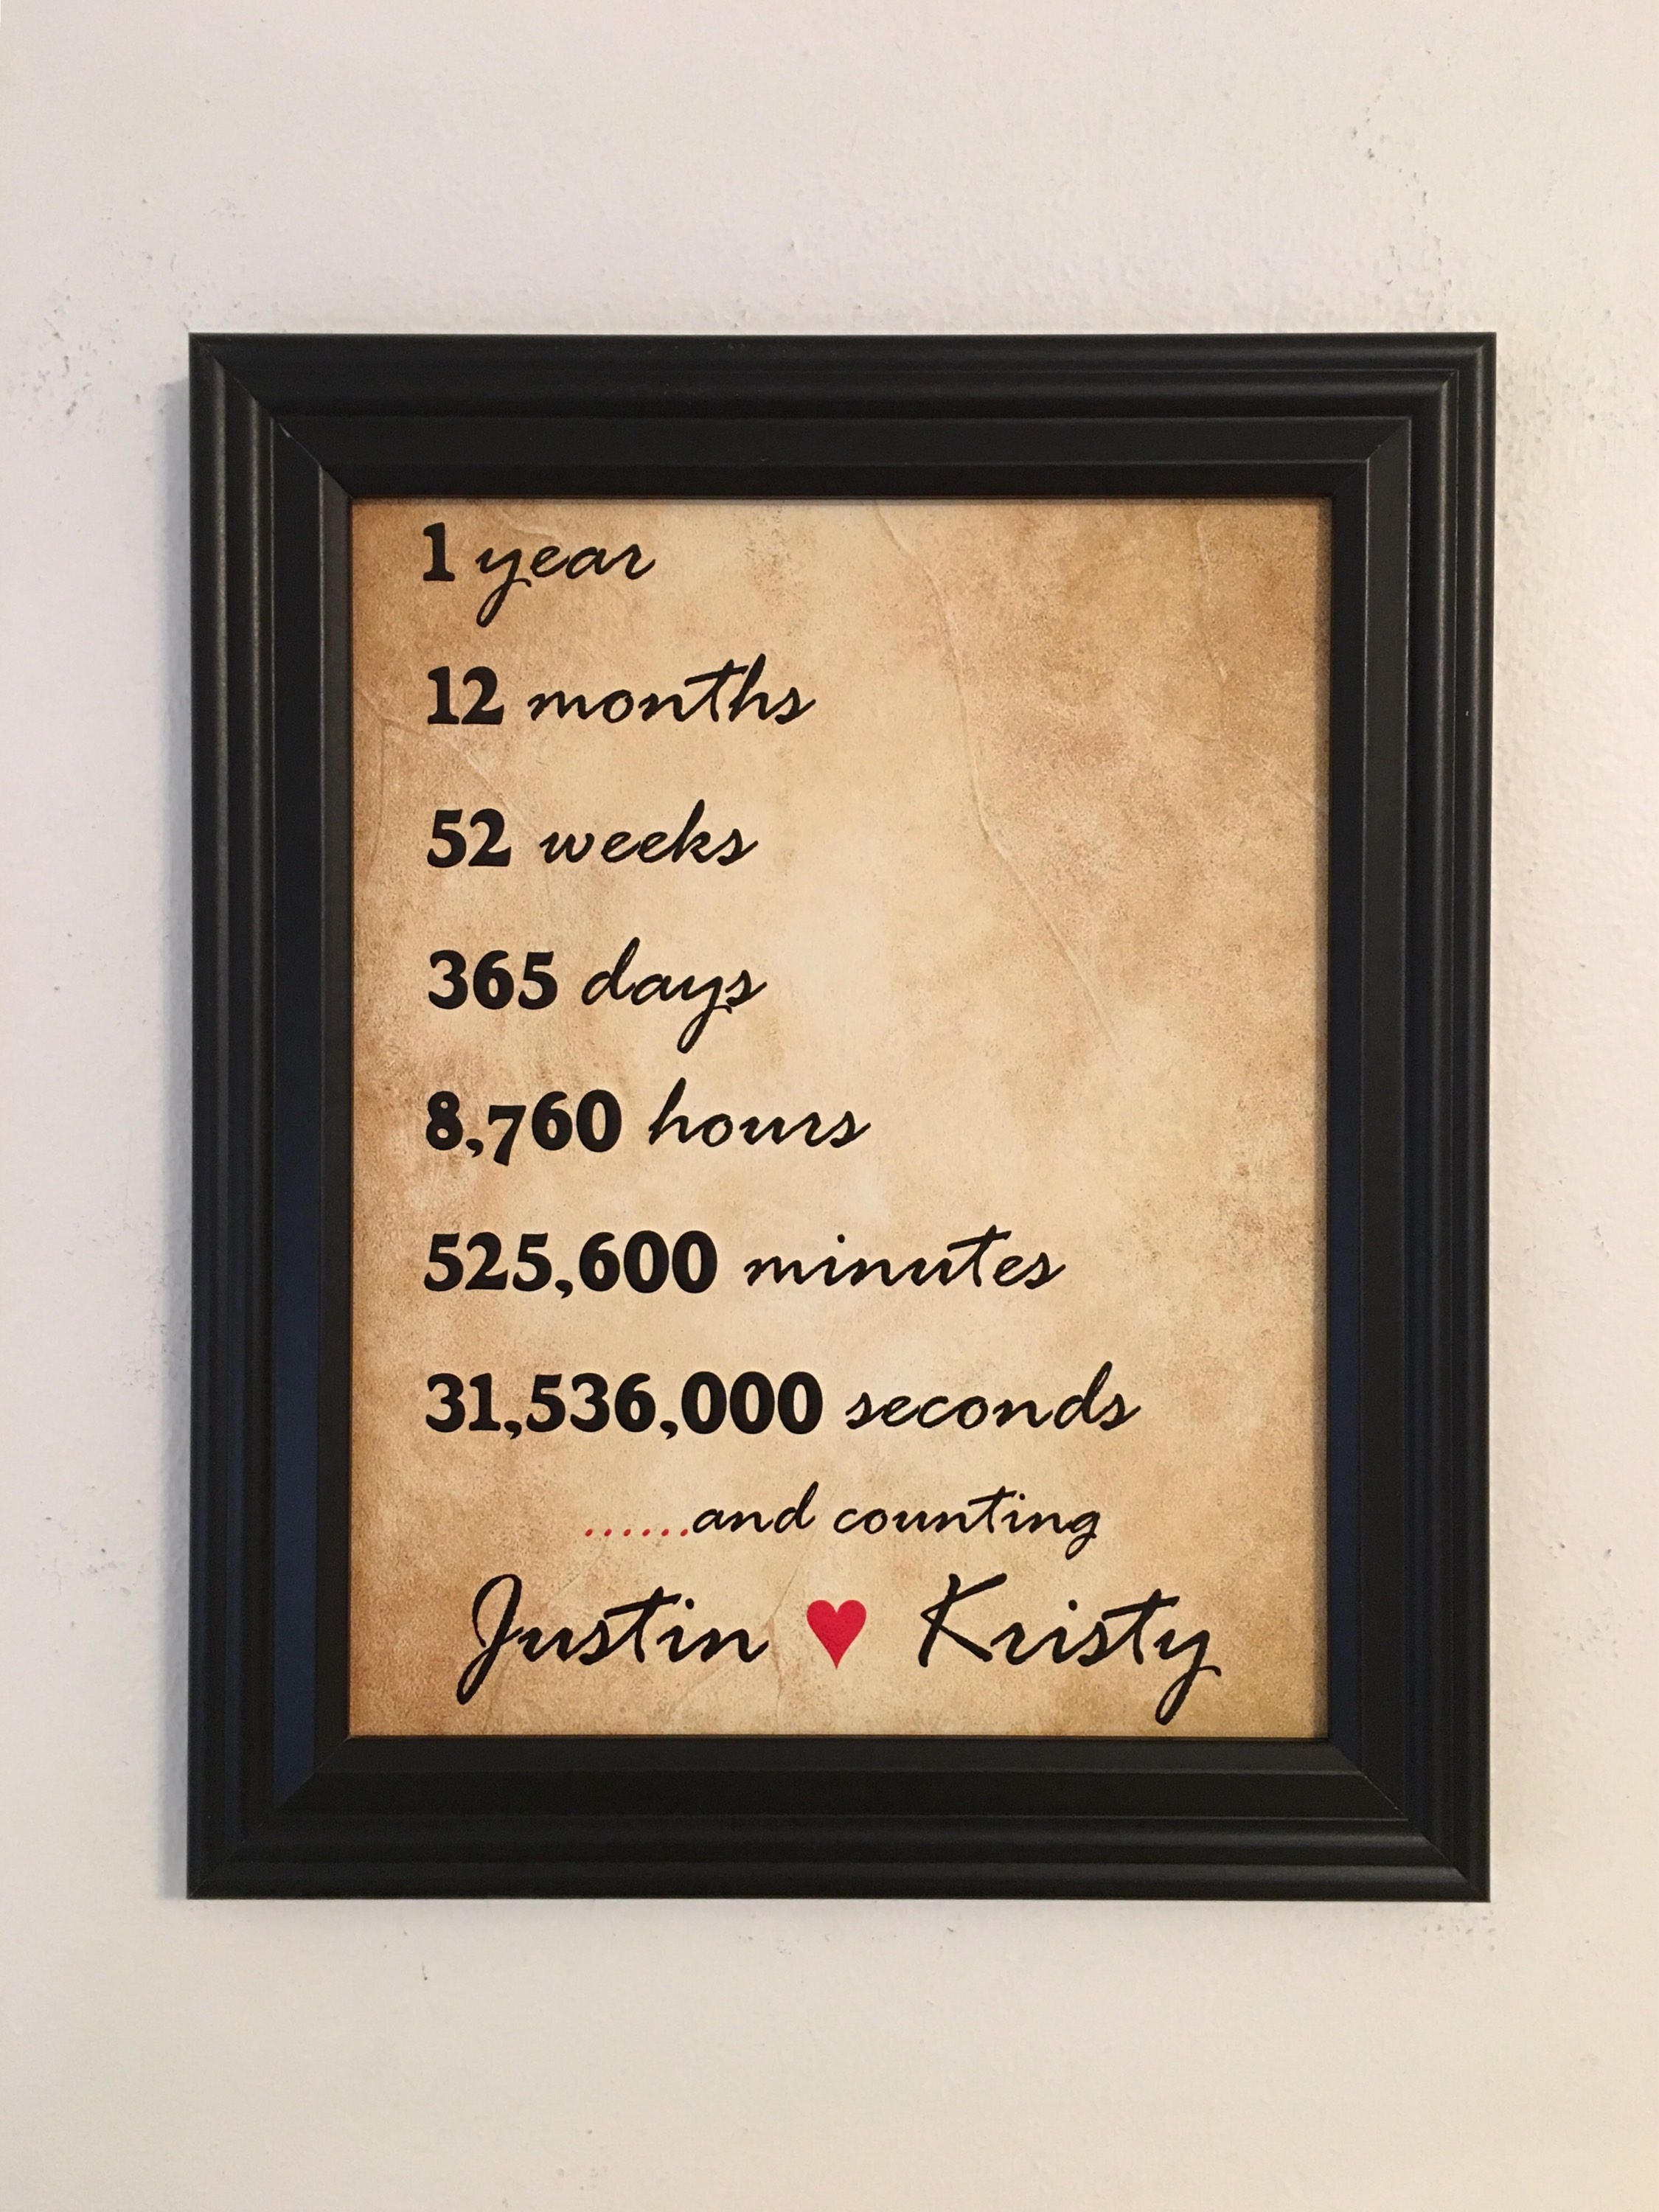 1 year
12 months
52 weeks
365 days
8,760 hours
525,600 minutes
31,536,000 seconds
......and counting
Justin ♥ Kristy